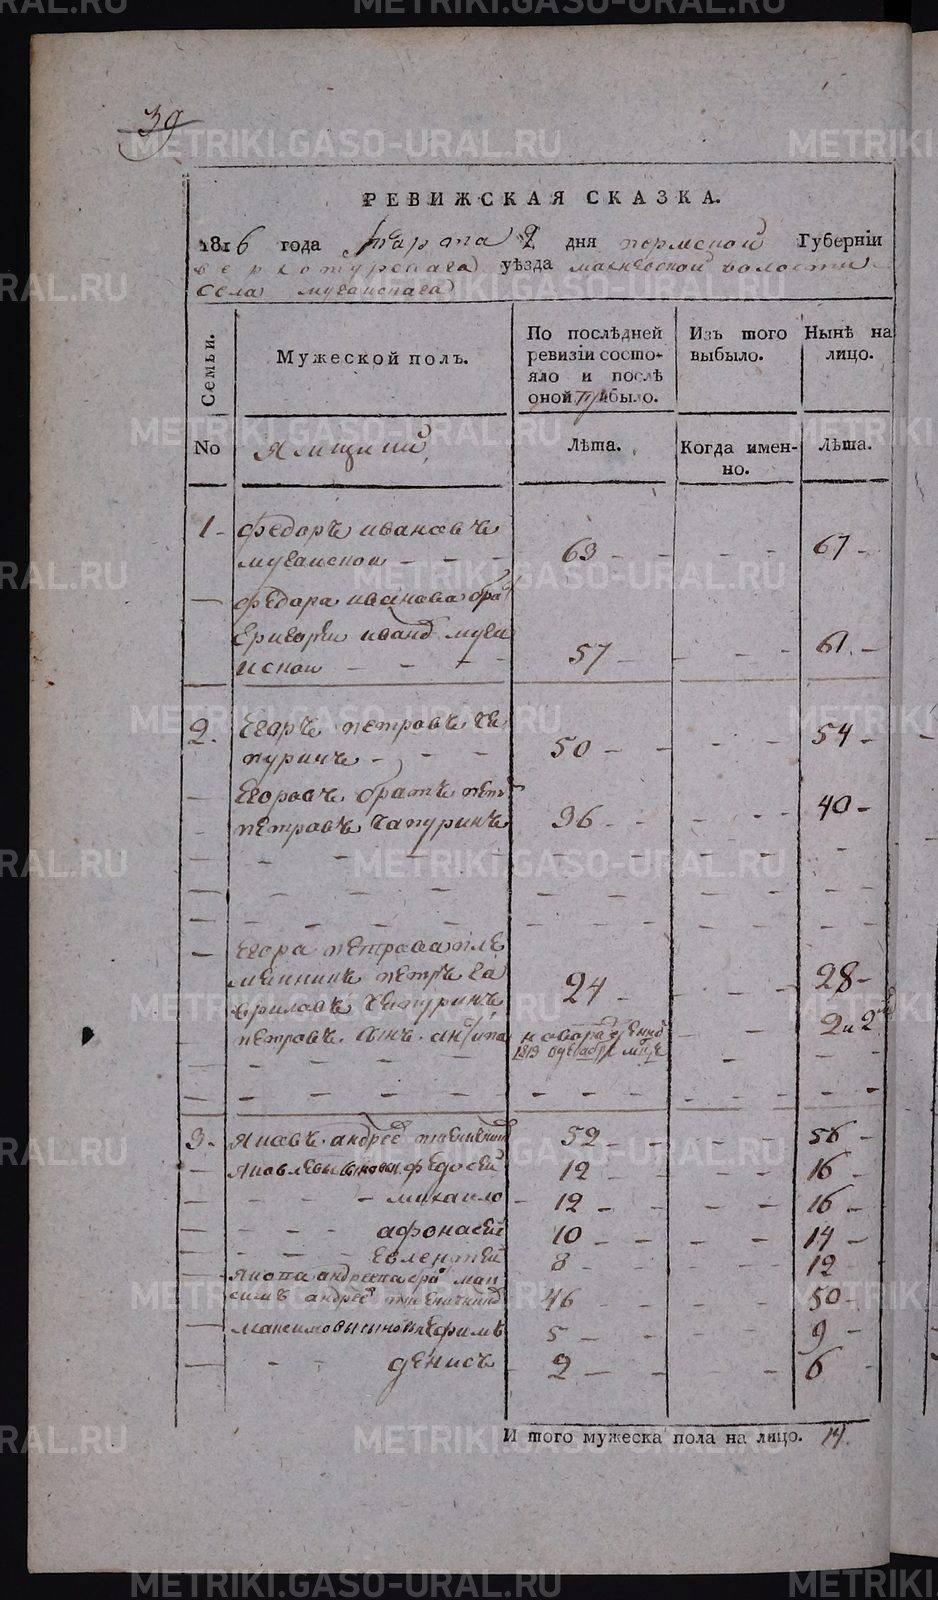 39
РЕВИЖСКАЯ СКАЗКА.
1816 года марта 2 дня пермской Губерніи
верхотурскаго уѣзда махневской волости
села мугайскаго
Семьи.
Мужеской полъ.
По послѣдней ревизіи состояло и послѣ оной прибыло.
Изъ того выбыло.
Нынѣ на лицо.
No
Ямщики
Лѣта.
Когда именно.
Лѣта.
1 - федоръ ивановъ
мугаиской - - - 63 - - - - 67 -
федора иванова бра
григореи иванов муга
искои - - - 57 - - - - 61 -
2. Егоръ петровъ че
пуринъ - - - 50 - - - - 54 -
Егоровъ братъ
петровъ Чапуринъ 36 - - - - 40 -
Егора петрова пле
менникъ петръ га
вриловъ Чепуринъ 24 - - - - 28 -
петровъ сынъ антипа новорожденной 2 и 2
1813 декабря мце
3. Яковъ андреев 52 - - - - 56 -
Яковлевы сыновья федосей 12 - - - - 16 -
- - - михаило - 12 - - - - 16 -
- - - афонасей 10 - - - - 14 -
- - - Евлентей 8 - - - - 12 -
Якова андреева бра мак
симъ андреев 46 - - - - 50 -
максимовы сыновья Ефимъ 5 - - - - 9 -
- - денисъ 2 - - - - 6 -
И того мужеска пола на лицо. 14.
METRIKI.GASO-URAL.RU